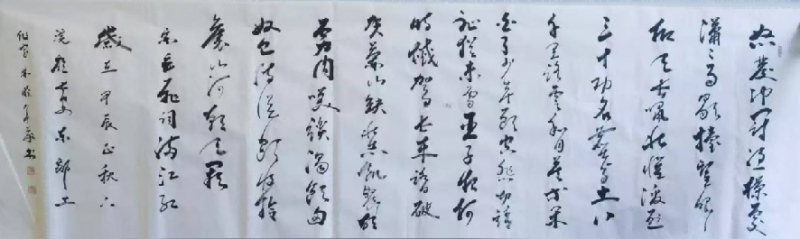 怒髮冲冠凭欄處
瀟瀟雨歇抬望眼
仰天長嘯壯懷激烈
三十功名塵与土八
千里路雲和月莫等閑
白了少年頭空悲切靖
耻猶未雪臣子恨何
時滅駕長車踏破
賀蘭山缺壯志飢餐胡
虜肉笑談渴飲匈
奴血待從頭收拾
舊山河朝天闕
宋岳飛詞滿江紅
歲在甲辰正秋六
浣於長安東郭工
作室